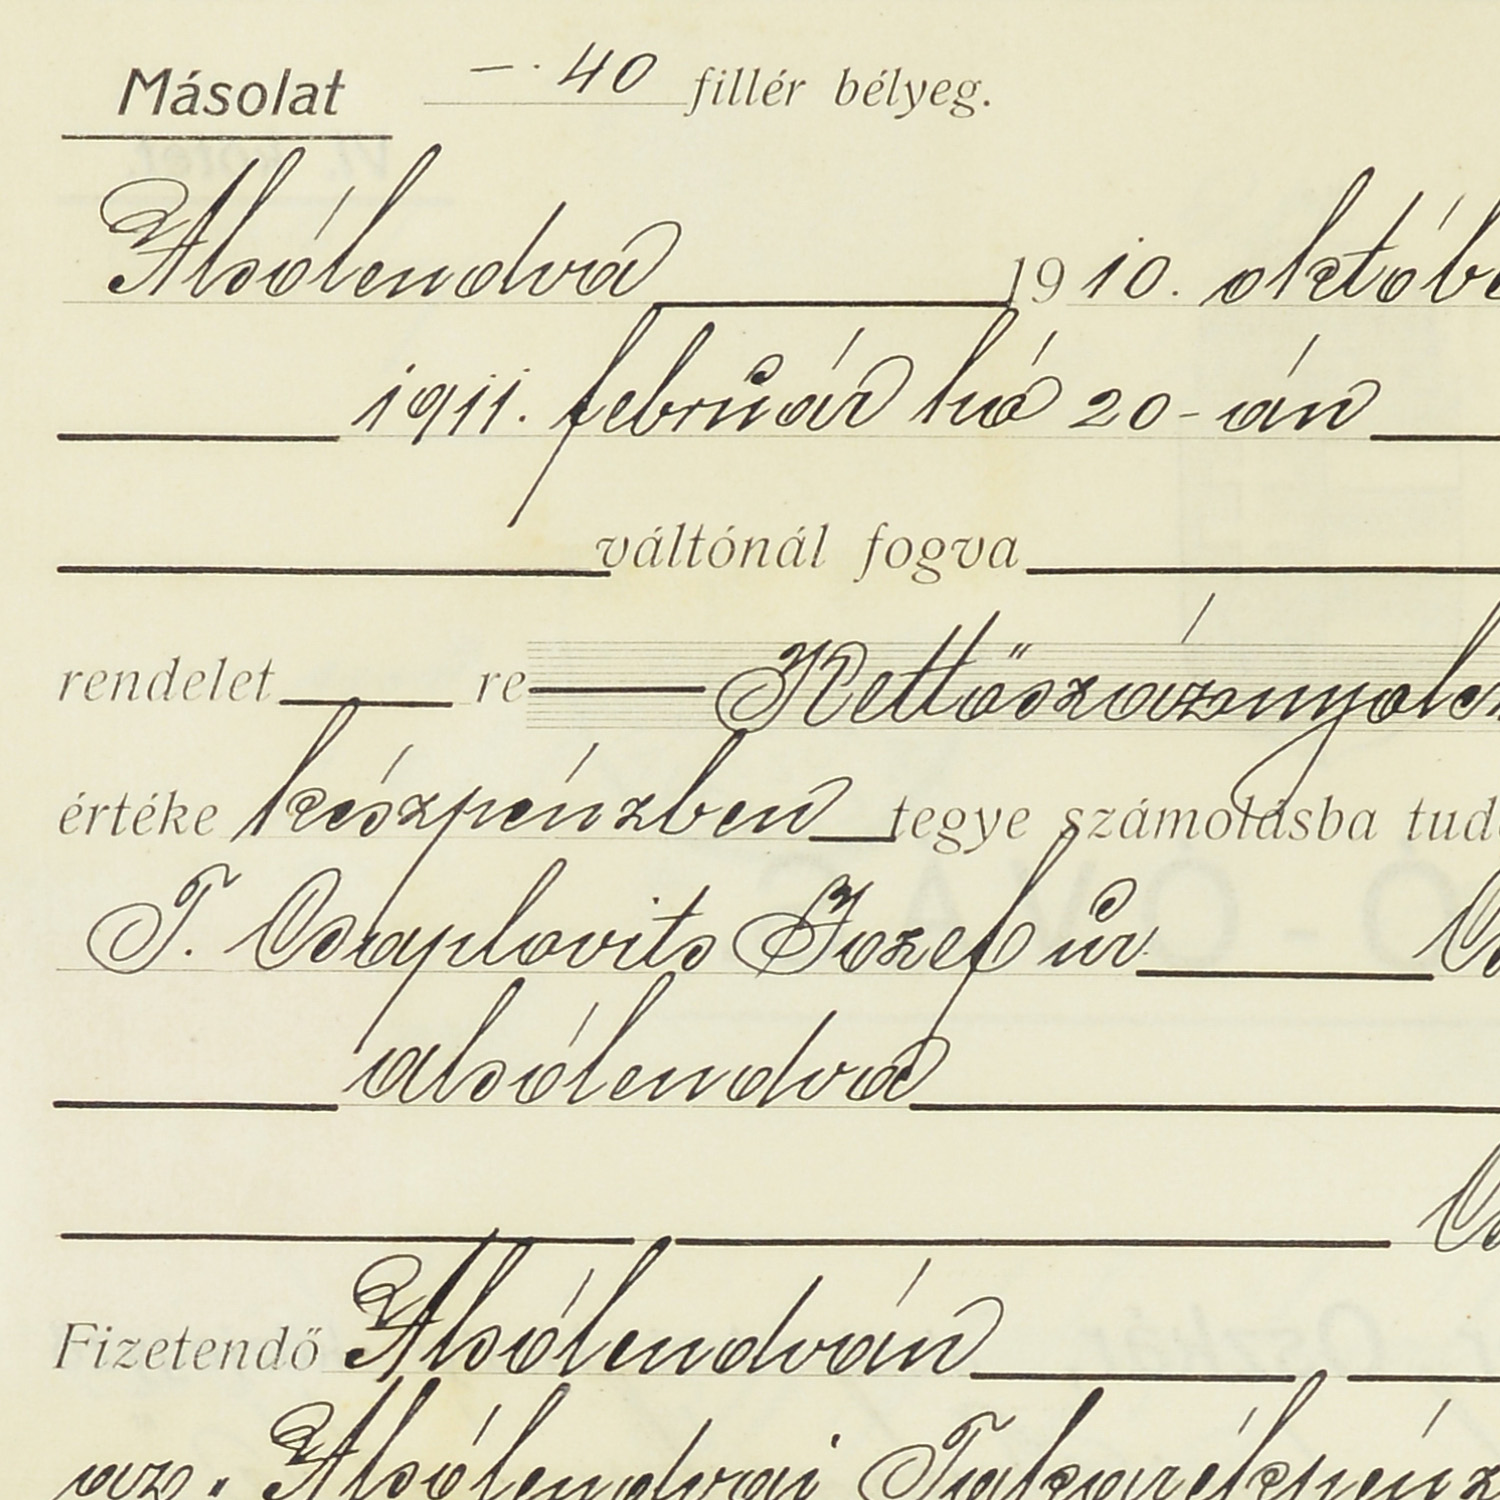 Másolat —.40 fillér bélyeg.
Alsólendva 1910. októbe
1911. február hó 20-án
váltónál fogva
rendelet re Kettőszáznyolc
értéke készpénzben tegye számolásba tud
T. Csaplovits Jozsef úr
alsólendva
Fizetendő Alsólendván
az. Alsólendvai Takarékpénz